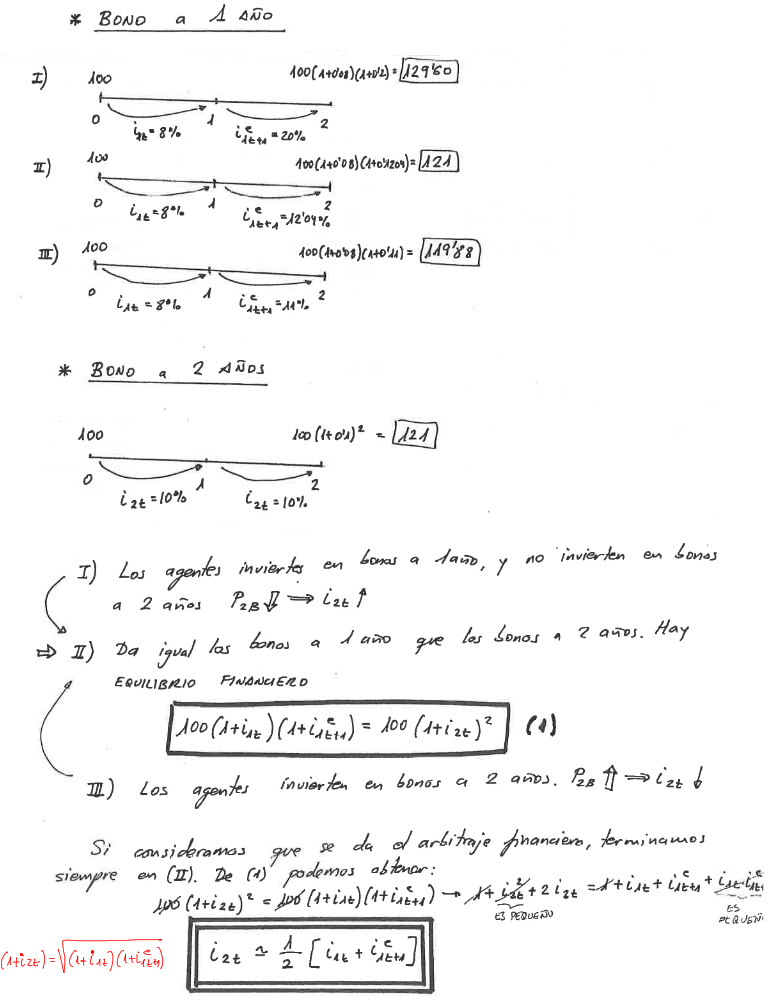 * BONO a 1 AÑO
I) 100 100(1+0'08)(1+0'2) = 129'60
0 1 2
i1t = 8% i^e1t+1 = 20%
II) 100 100(1+0'08)(1+0'1204) = 121
0 1 2
i1t = 8% i^e1t+1 = 12'04%
III) 100 100(1+0'08)(1+0'11) = 119'88
0 1 2
i1t = 8% i^e1t+1 = 11%
* BONO a 2 AÑOS
100 100(1+0'1)² = 121
0 1 2
i2t = 10% i2t = 10%
I) Los agentes invierten en bonos a 1 año, y no invierten en bonos
a 2 años P2B ⇓ ⟹ i2t ↑
⇒ II) Da igual los bonos a 1 año que los bonos a 2 años. Hay
EQUILIBRIO FINANCIERO
100(1+i1t)(1+i^e1t+1) = 100(1+i2t)² (1)
III) Los agentes invierten en bonos a 2 años. P2B ⇑ ⟹ i2t ↓
Si consideramos que se da el arbitraje financiero, terminamos
siempre en (II). De (1) podemos obtener:
100(1+i2t)² = 100(1+i1t)(1+i^e1t+1) → 1 + i2t² + 2i2t = 1 + i1t + i^e1t+1 + i1t·i^e
ES PEQUEÑO
ES
PEQUEÑO
(1+i2t) = √(1+i1t)(1+i^e1t+1)
i2t ≃ 1/2 [i1t + i^e1t+1]